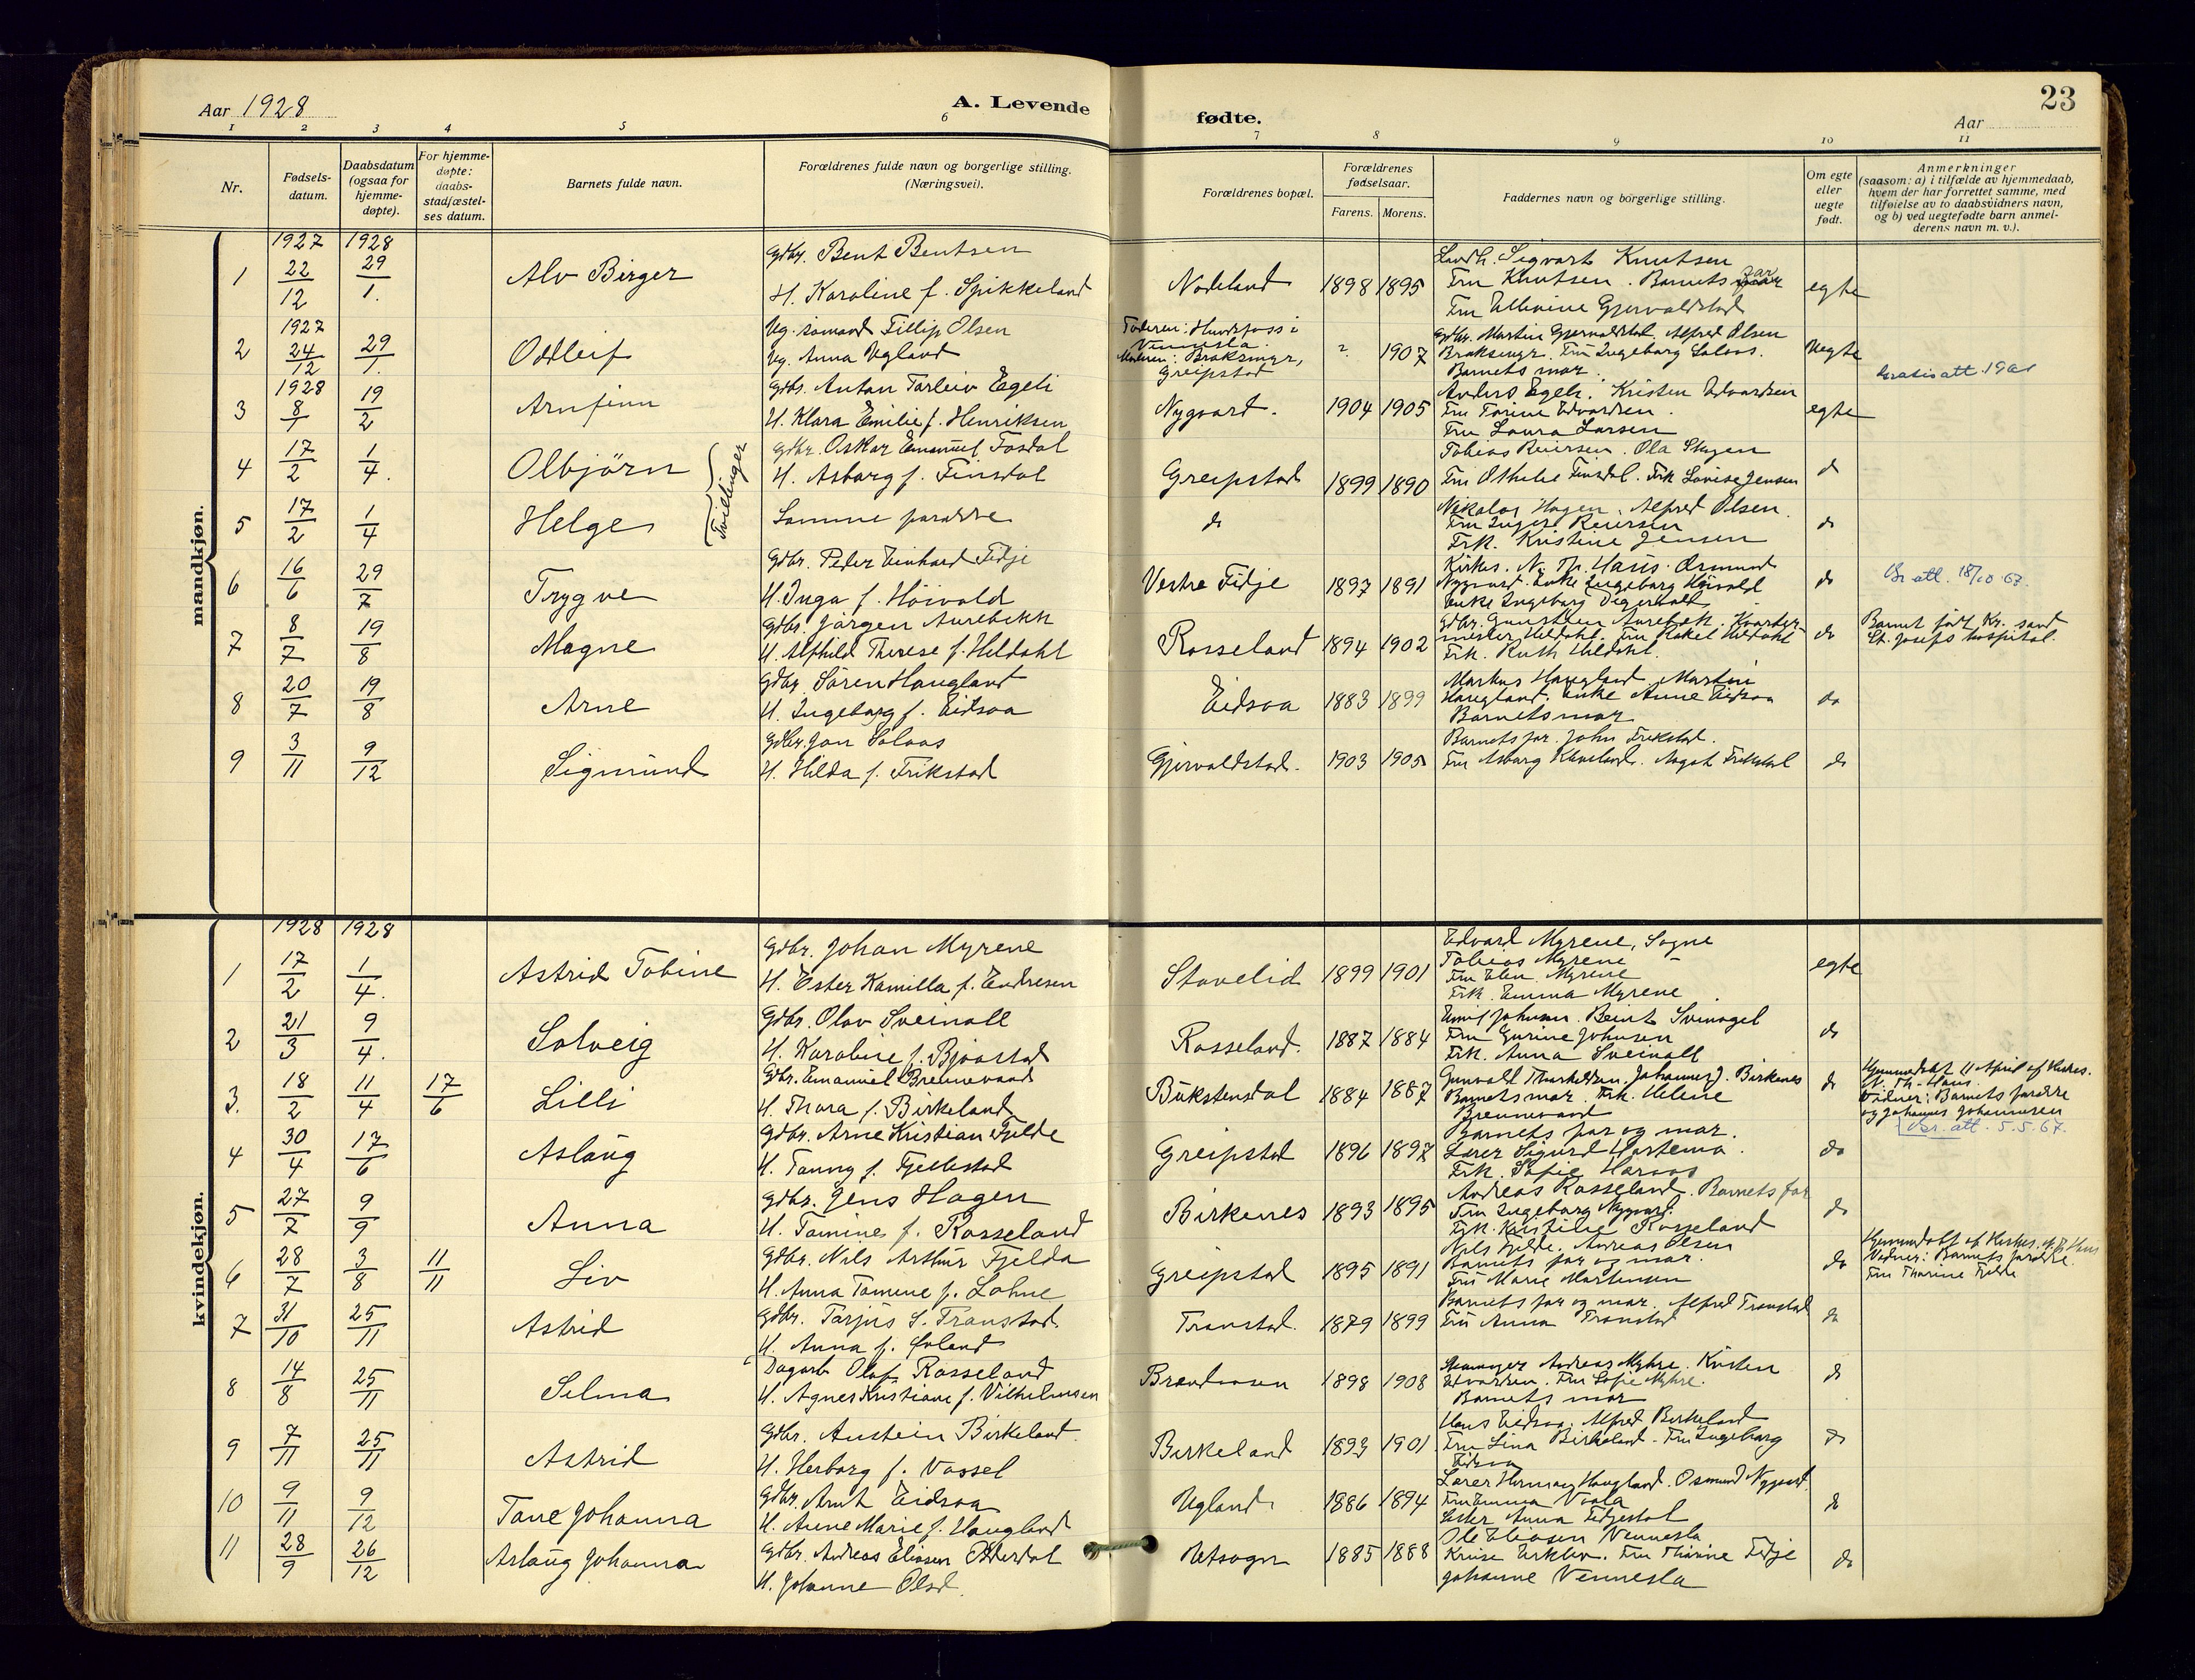 Aar 1928
A. Levende
fødte.
23
Aar
1 2 3 4 5 6 7 8 9 10 11
Nr.
Fødsels-
datum.
Daabsdatum
(ogsaa for
hjemme-
døpte).
For hjemme-
døpte:
daabs-
stadfæstel-
ses datum.
Barnets fulde navn.
Forældrenes fulde navn og borgerlige stilling.
(Næringsvei).
Forældrenes bopæl.
Forældrenes
fødselsaar.
Farens. Morens.
Faddernes navn og borgerlige stilling.
Om egte
eller
uegte
født.
Anmerkninger
(saasom: a) i tilfælde av hjemmedaab,
hvem der har forrettet samme, med
tilføielse av to daabsvidners navn,
og b) ved uegtefødte barn anmel-
derens navn m. v.).
mandkjøn.
1927 1928
1 22/12 29/1. Alv Birger
Gdbr. Bent Bentsen
H. Karoline f. Spikkeland
Nodeland 1898 1895
Sigvart Knutsen
Fru Knutsen. Barnets far
Fru Elevine Gjervaldstad
egte
1927
2 24/12 29/1. Oddleif
Ug. sømand Fillip Olsen
Ug. Anna Ugland
Faderen: Hunsfoss i
Vennesla.
Moderen: Braksmyr,
Greipstad
? 1907
Gdbr. Martin Gjervaldstad. Alfred Olsen
Braksmyr. Fru Ingeborg Solaas.
Barnets mor.
Uegte
1928
3 8/1 19/2 Arnfinn
Gdbr. Anton Torleiv Egeli
H. Klara Emilie f. Henriksen
Nygaard. 1904 1905
Anders Egeli. Kristen Edvardsen
Fru Torine Edvardsen.
Fru Laura Larsen
egte
4 17/2 1/4. Olbjörn
Tvillinger
Gdbr. Oskar Emanuel Fosdal
H. Asborg f. Finsdal
Greipstad 1899 1890
Tobias Reiersen. Ola Skogen
Fru Othelie Finsdal. Frk Lovise Jensen
do
5 17/2 1/4 Helge
Samme foreldre
do
Nikolai Hagen. Alfred Olsen.
Fru Inger Reiersen
Frk. Kristine Jensen
do
6 16/6 29/7 Trygve
Gdbr. Peder Einhard Fidje
H. Inga f. Höivold
Vestre Fidje 1897 1891
Kirkes. N. Th. Haus. Osmund
Nygaard. Enke Ingeborg Höivold
Enke Ingeborg
do
att. 18/10 67.
7 8/7 19/8 Magne
Gdbr. Jörgen Aurebekk
H. Alfhild Therese f. Hildahl
Rosseland 1894 1902
Gdbr. Gunstein Aurebek. Kvarter-
mester Hildahl. Fru Rakel Hildahl
Frk. Ruth Hildahl.
do
Barnet født Kr. sand
St. Josefs hospital.
8 20/7 19/8 Arne
Gdbr Sören Haugland
H. Ingeborg f. Eidsaa
Eidsaa 1883 1899
Markus Haugland. Martin
Haugland. Enke Anne Eidsaa
Barnets mor
do
9 3/11 9/12 Sigmund
Gdbr. Jon Solaas
H. Hilda f. Frikstad
Gjervaldstad. 1903 1905
Barnets far. John Frikstad.
Fru Asborg Kaveland. Aagot Frikstad
do
kvindekjøn.
1928 1928
1 17/2 1/4. Astrid Tobine
Gdbr. Johan Myrene
H. Ester Kamilla f. Endresen
Stavelid 1899 1901
Edvard Myrene, Søgne
Tobias Myrene
Fru Elen Myrene
Frk. Emma Myrene.
egte
2 21/3 9/4. Solveig
Gdbr. Olav Sveinall
H. Karoline f. Bjaastad
Rosseland. 1887 1884
Emil Johnsen. Beint
Fru Gurine Johnsen
Frk. Anna Sveinall
do
3. 18/2 11/4 17/6 Lilli
Gdbr. Emanuel Brennevand
H. Thora f. Birkeland
Bukstensdal 1884 1887
Gunvald Thorkildsen. Johannes J. Birkenes
Barnets mor. Frk. Helene
Brennevand
do
Hjemmedøbt 11 April af Kirkes.
N. Th. Haus.
Vidner: Barnets foreldre
og Johannes Johannesen
Vsr. att. 5.5.67.
4 30/4 17/6 Aslaug
Gdbr. Arne Kristian Fjelde
H. Tanny f. Fjellestad
Greipstad 1896 1897
Barnets far og mor.
Lærer Sigurd Hortemo.
Frk. Sofie
do
5 27/7 9/9 Anna
Gdbr. Jens Hagen
H. Tomine f. Rosseland
Birkenes 1893 1895
Andreas Rosseland. Barnets far
Fru Ingeborg Nygaard.
Frk. Kristine Rosseland
do
6 28/7 3/8 11/11 Liv
Gdbr. Nils Arthur Fjelda
H. Anna Tomine f. Lohne
Greipstad 1895 1891
Nils Fjelde. Andreas Olsen
Barnets far og mor.
Fru Marie Mortensen
do
Hjemmedøbt af Kirkes.
Vidner: Barnets foreldre.
Fru Thorine Fjelde
7 31/10 25/11 Astrid
Gdbr. Tarjus S. Tronstad.
H. Anna f. Øvland
Tronstad. 1879 1899
Barnets far og mor. Alfred Tronstad
Fru Anna Tronstad
do
8 14/8 25/11 Selma
Dagarb Olaf Rosseland
H. Agnes Kristiane f. Vilhelmsen
Brandaasen 1898 1908
Andreas Myhre. Kristen
Edvardsen. Fru Sofie Myhre.
Barnets mor
do
9 7/11 25/11 Astrid
Gdbr. Austein Birkeland.
H. Herborg f. Vassel
Birkeland 1893 1901
Hans Eidsaa. Alfred Birkeland
Fru Lina Birkeland. Fru Ingeborg
Eidsaa
do
10 9/11 9/12 Tone Johanna
Gdbr. Arnt Eidsaa
H. Anne Marie f. Haugland
Ugland 1886 1894
Lærer Herman Haugland. Osmund Nygaard.
Fru Emma
Anna Fidjestøl
do
11 28/9 26/12 Aslaug Johanna
Gdbr. Andreas Eliasen Odderdal
H. Johanne Olsd.
Utsogn 1885 1888
Ole Eliasen Vennesla
Fru Thorine Fidje
Johanne Vennesla
do